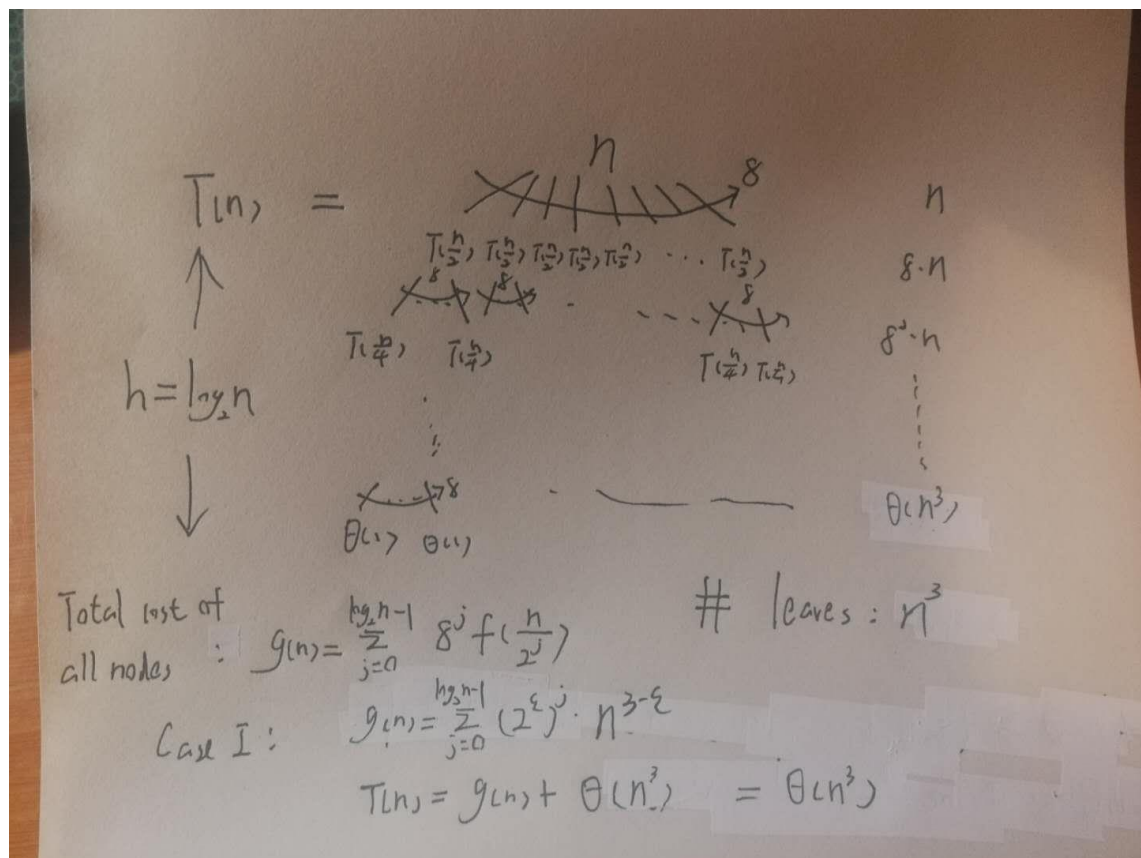 n
T(n) = 8 n
T(n/2) T(n/2) T(n/2) T(n/2) T(n/2) ... T(n/2) 8·n
8 8 ... 8
T(n/4) T(n/4) T(n/4) T(n/4) 8^j·n
h=log₂n
8
θ(1) θ(1) θ(n³)
# leaves: n³
Total cost of
all nodes : g(n)= Σ_{j=0}^{log₂n-1} 8^j f(n/2^j)
Case I: g(n)= Σ_{j=0}^{log₂n-1} (2^ε)^j · n^{3-ε}
T(n) = g(n) + θ(n³) = θ(n³)